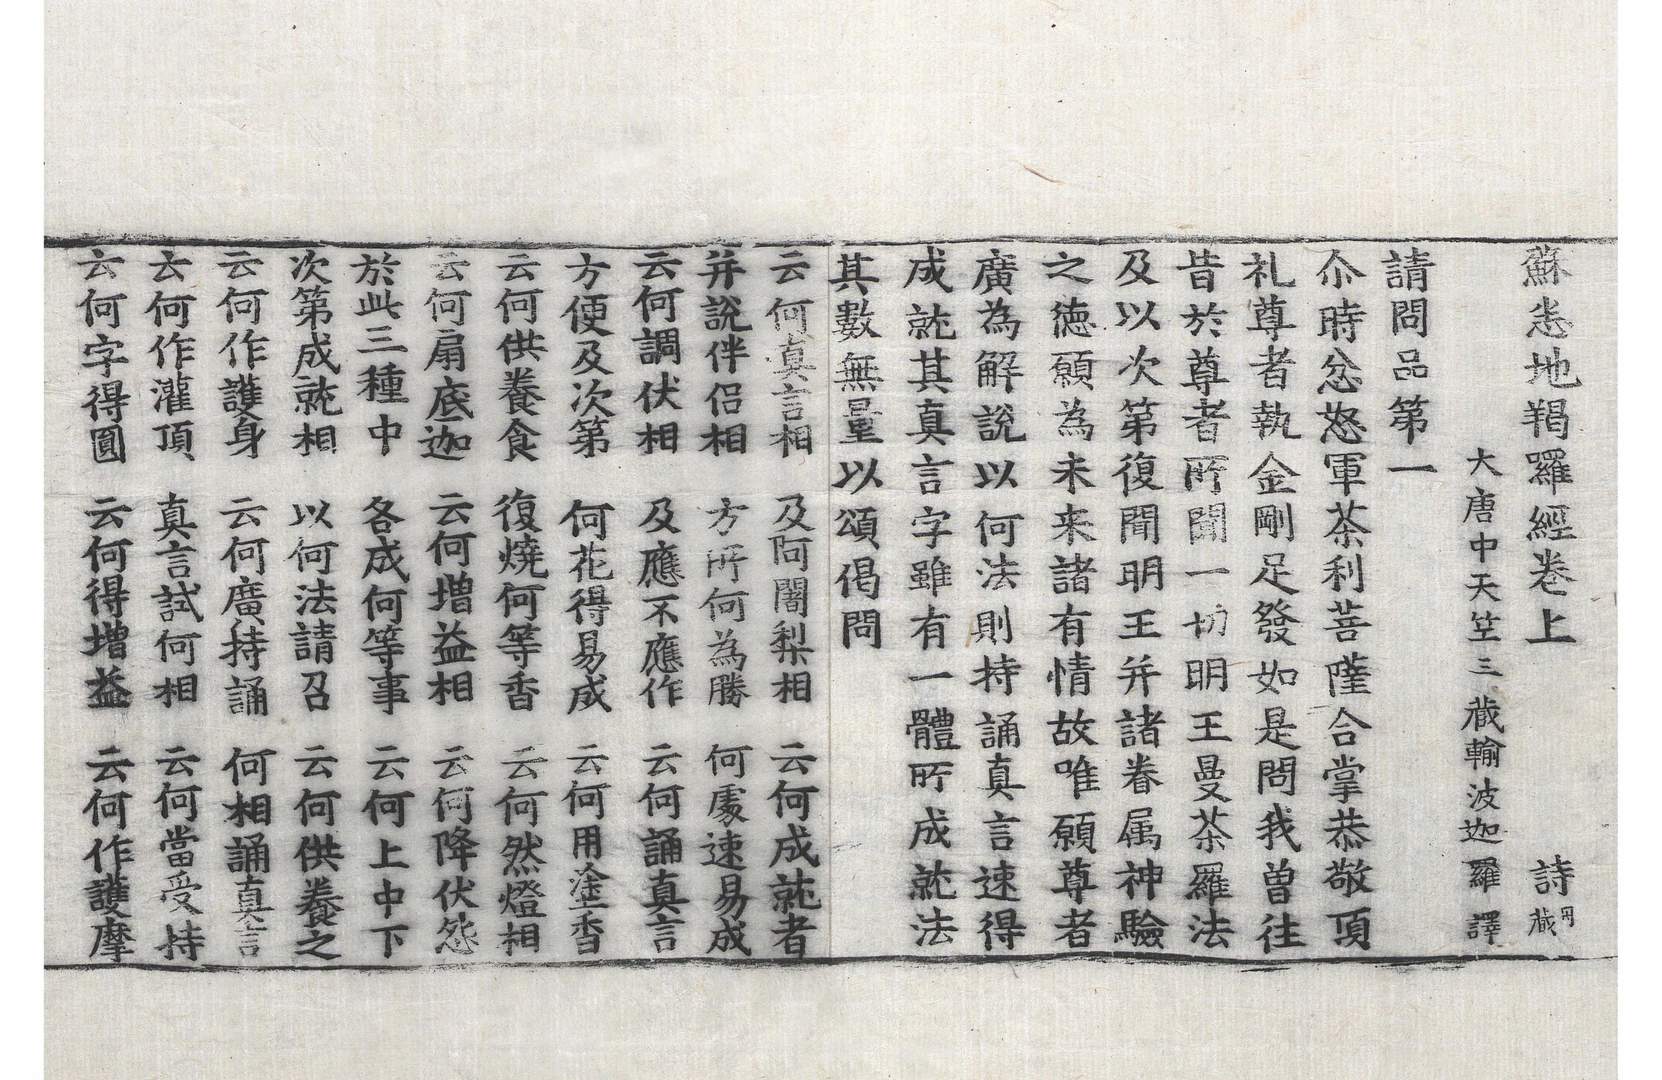 蘇悉地羯羅經卷上 詩
大唐中天竺三藏輸波迦羅譯
請問品第一
尒時忿怒軍荼利菩薩合掌恭敬頂
礼尊者執金剛足發如是問我曽往
昔於尊者所聞一切明王曼荼羅法
及以次第復聞明王并諸眷属神驗
之徳願為未来諸有情故唯願尊者
廣為解說以何法則持誦真言速得
成就其真言字雖有一體所成就法
其數無量以頌偈問
云何真言相 及阿闍梨相 云何成就者
并說伴侣相 方所何為勝 何處速易成
云何調伏相 及應不應作 云何誦真言
方便及次第 何花得易成 云何用塗香
云何供養食 復燒何等香 云何然燈相
云何扇底迦 云何增益相 云何降伏怨
於此三種中 各成何等事 云何上中下
次第成就相 以何法請召 云何供養之
云何作護身 云何廣持誦 何相誦真言
云何作灌頂 真言試何相 云何當受持
云何字得圓 云何得增益 云何作護摩